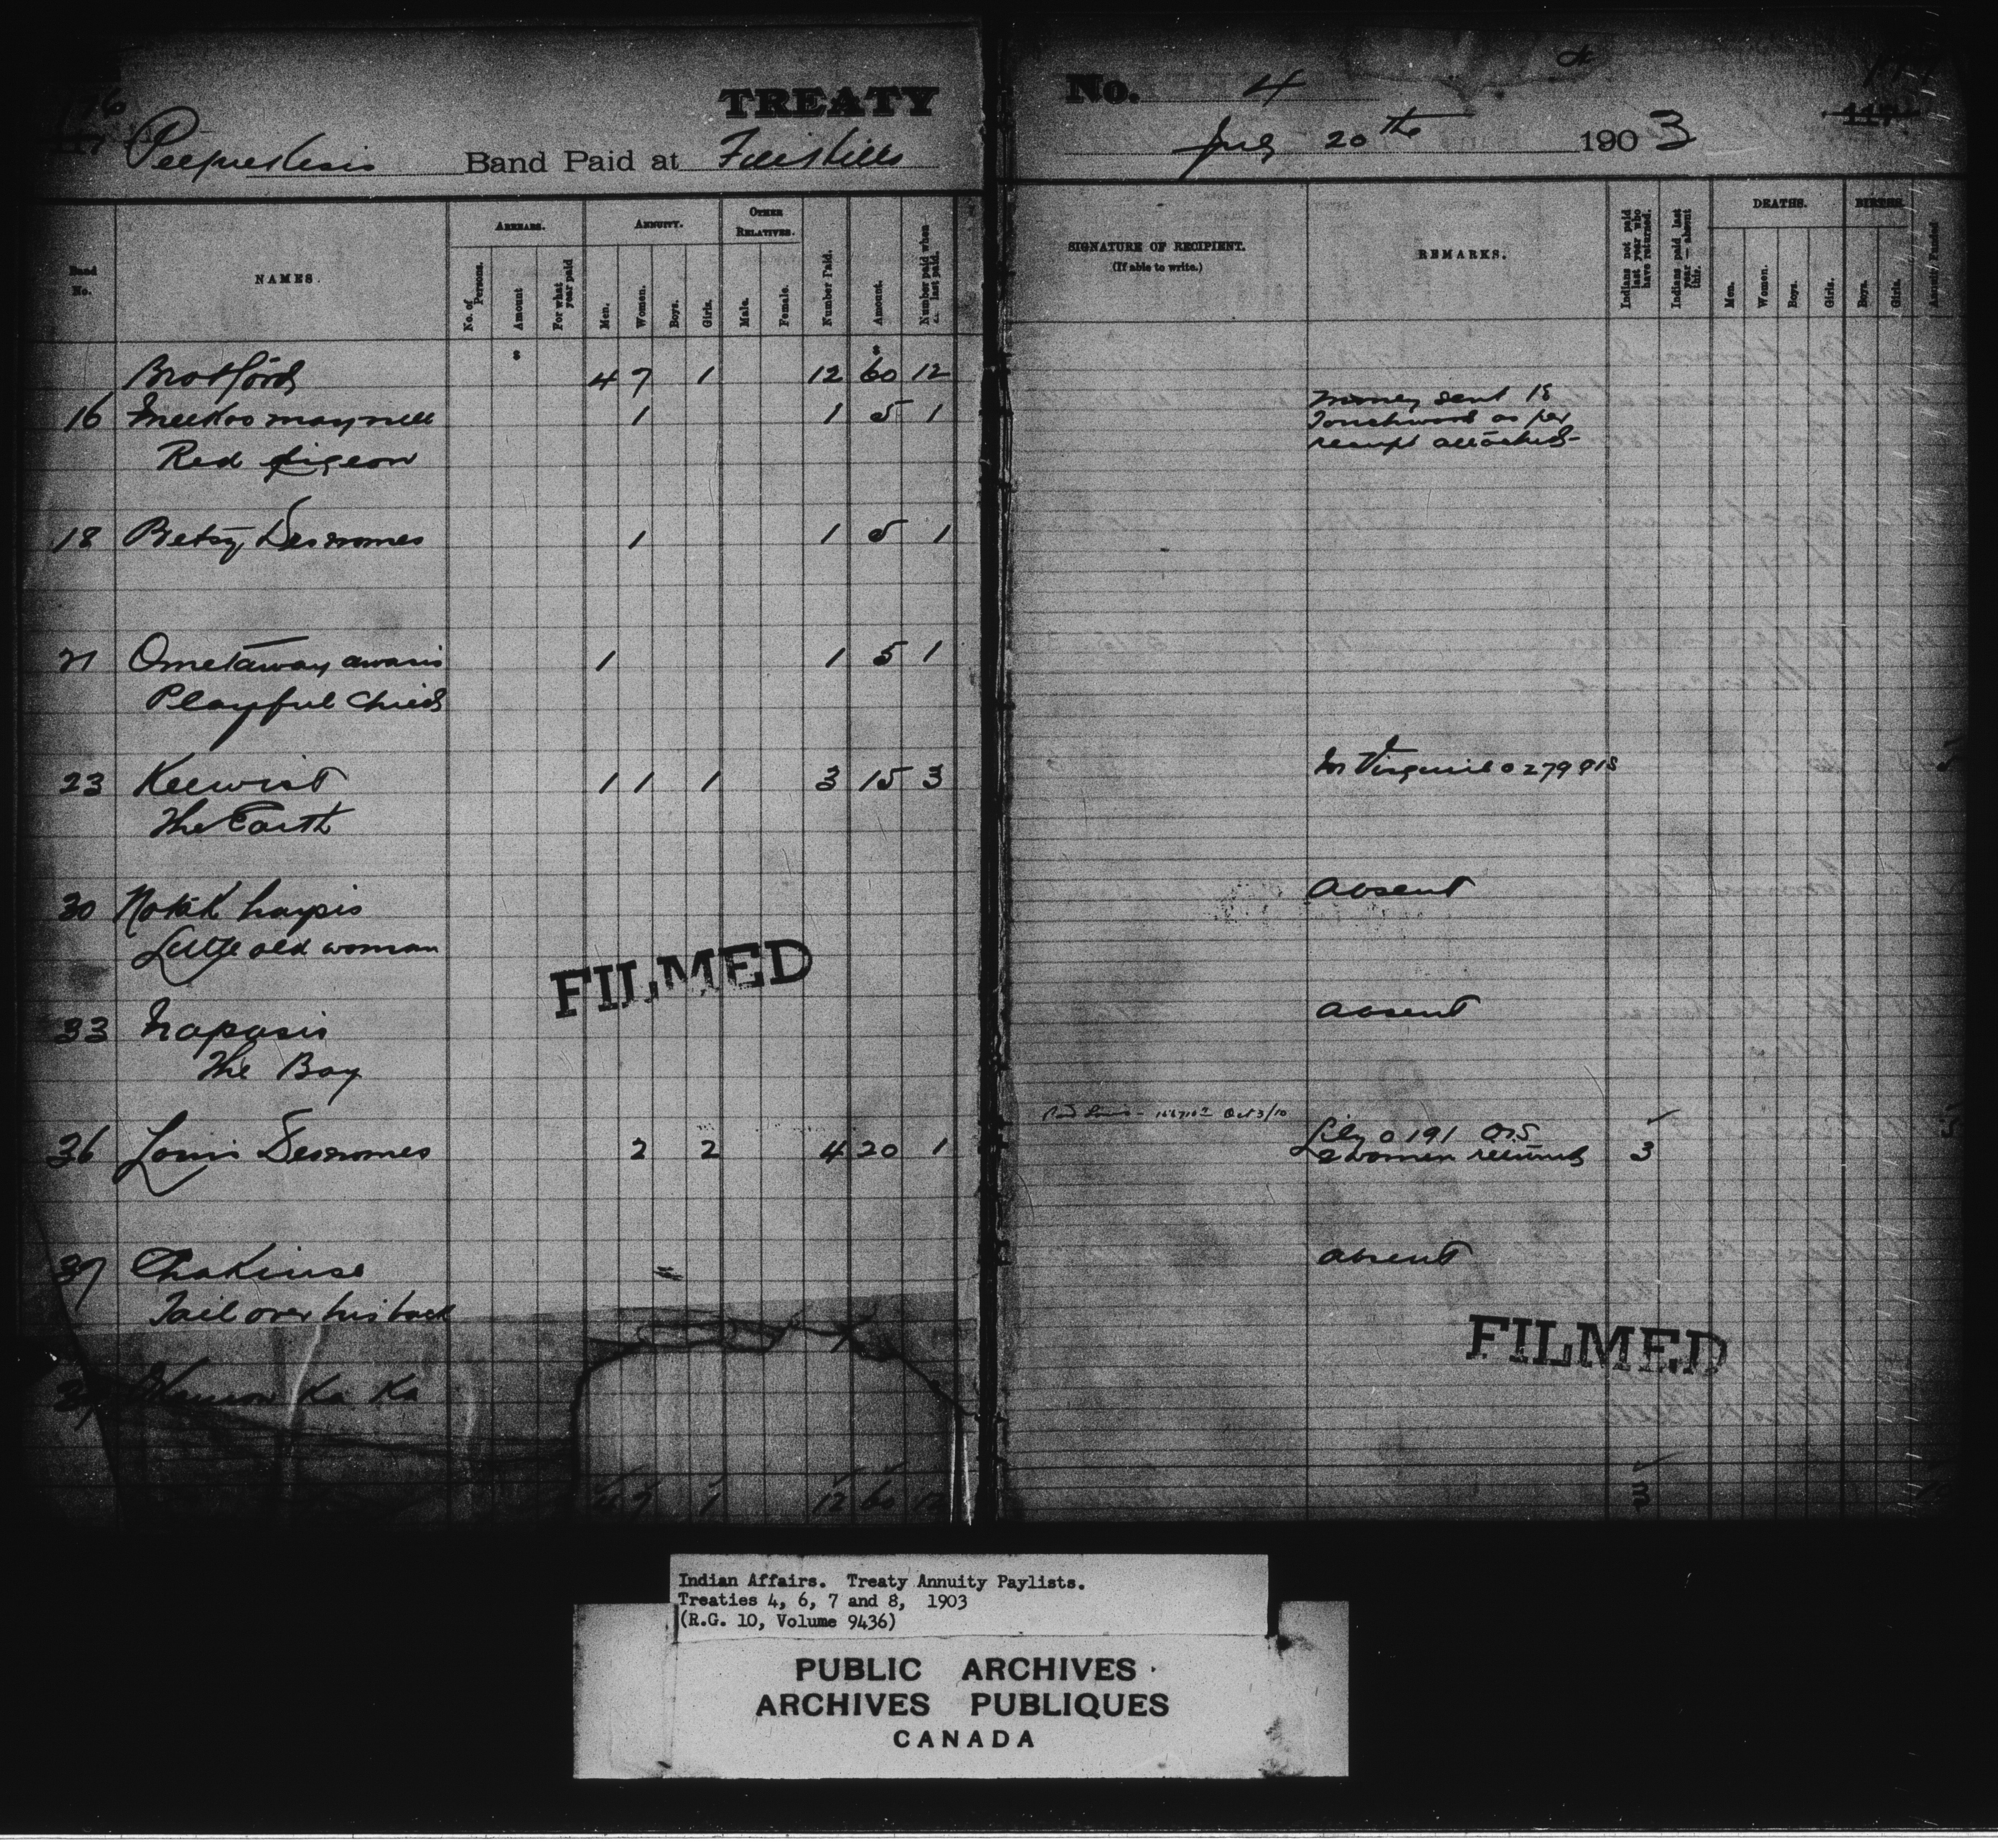 176
TREATY No. 4
Band Paid at File Hills July 20th 1903
Band No.
NAMES.
ARREARS.
No. of Persons.
Amount
For what year paid
ANNUITY.
Men.
Women.
Boys.
Girls.
OTHER RELATIVES.
Male.
Female.
Number Paid.
Amount.
Number paid when last paid.
SIGNATURE OF RECIPIENT.
(If able to write.)
REMARKS.
Indians not paid last year who have returned.
Indians paid last year — absent this.
DEATHS.
Men.
Women.
Boys.
Girls.
BIRTHS.
Boys.
Girls.
$ $
Brot Ford 4 7 1 12 60 12
16 1 1 5 1 money sent to
Touchwood as per
Red pigeon receipt attached
18 Betsy Desnomes 1 1 5 1
21 Ometaway awasis 1 1 5 1
Playful Child
23 Keewist 1 1 1 3 15 3
The Earth
30 absent
Little old woman
33 Napasis absent
The Boy
Oct 3/10
36 Louis Desnomes 2 2 4 20 1 Lily 0191
2 women returned 3
37 Chakinse absent
Tail over his back
FILMED
FILMED
Ka Ka
4 7 1 12 60 12 3
Indian Affairs. Treaty Annuity Paylists.
Treaties 4, 6, 7 and 8, 1903
(R.G. 10, Volume 9436)
PUBLIC ARCHIVES
ARCHIVES PUBLIQUES
CANADA